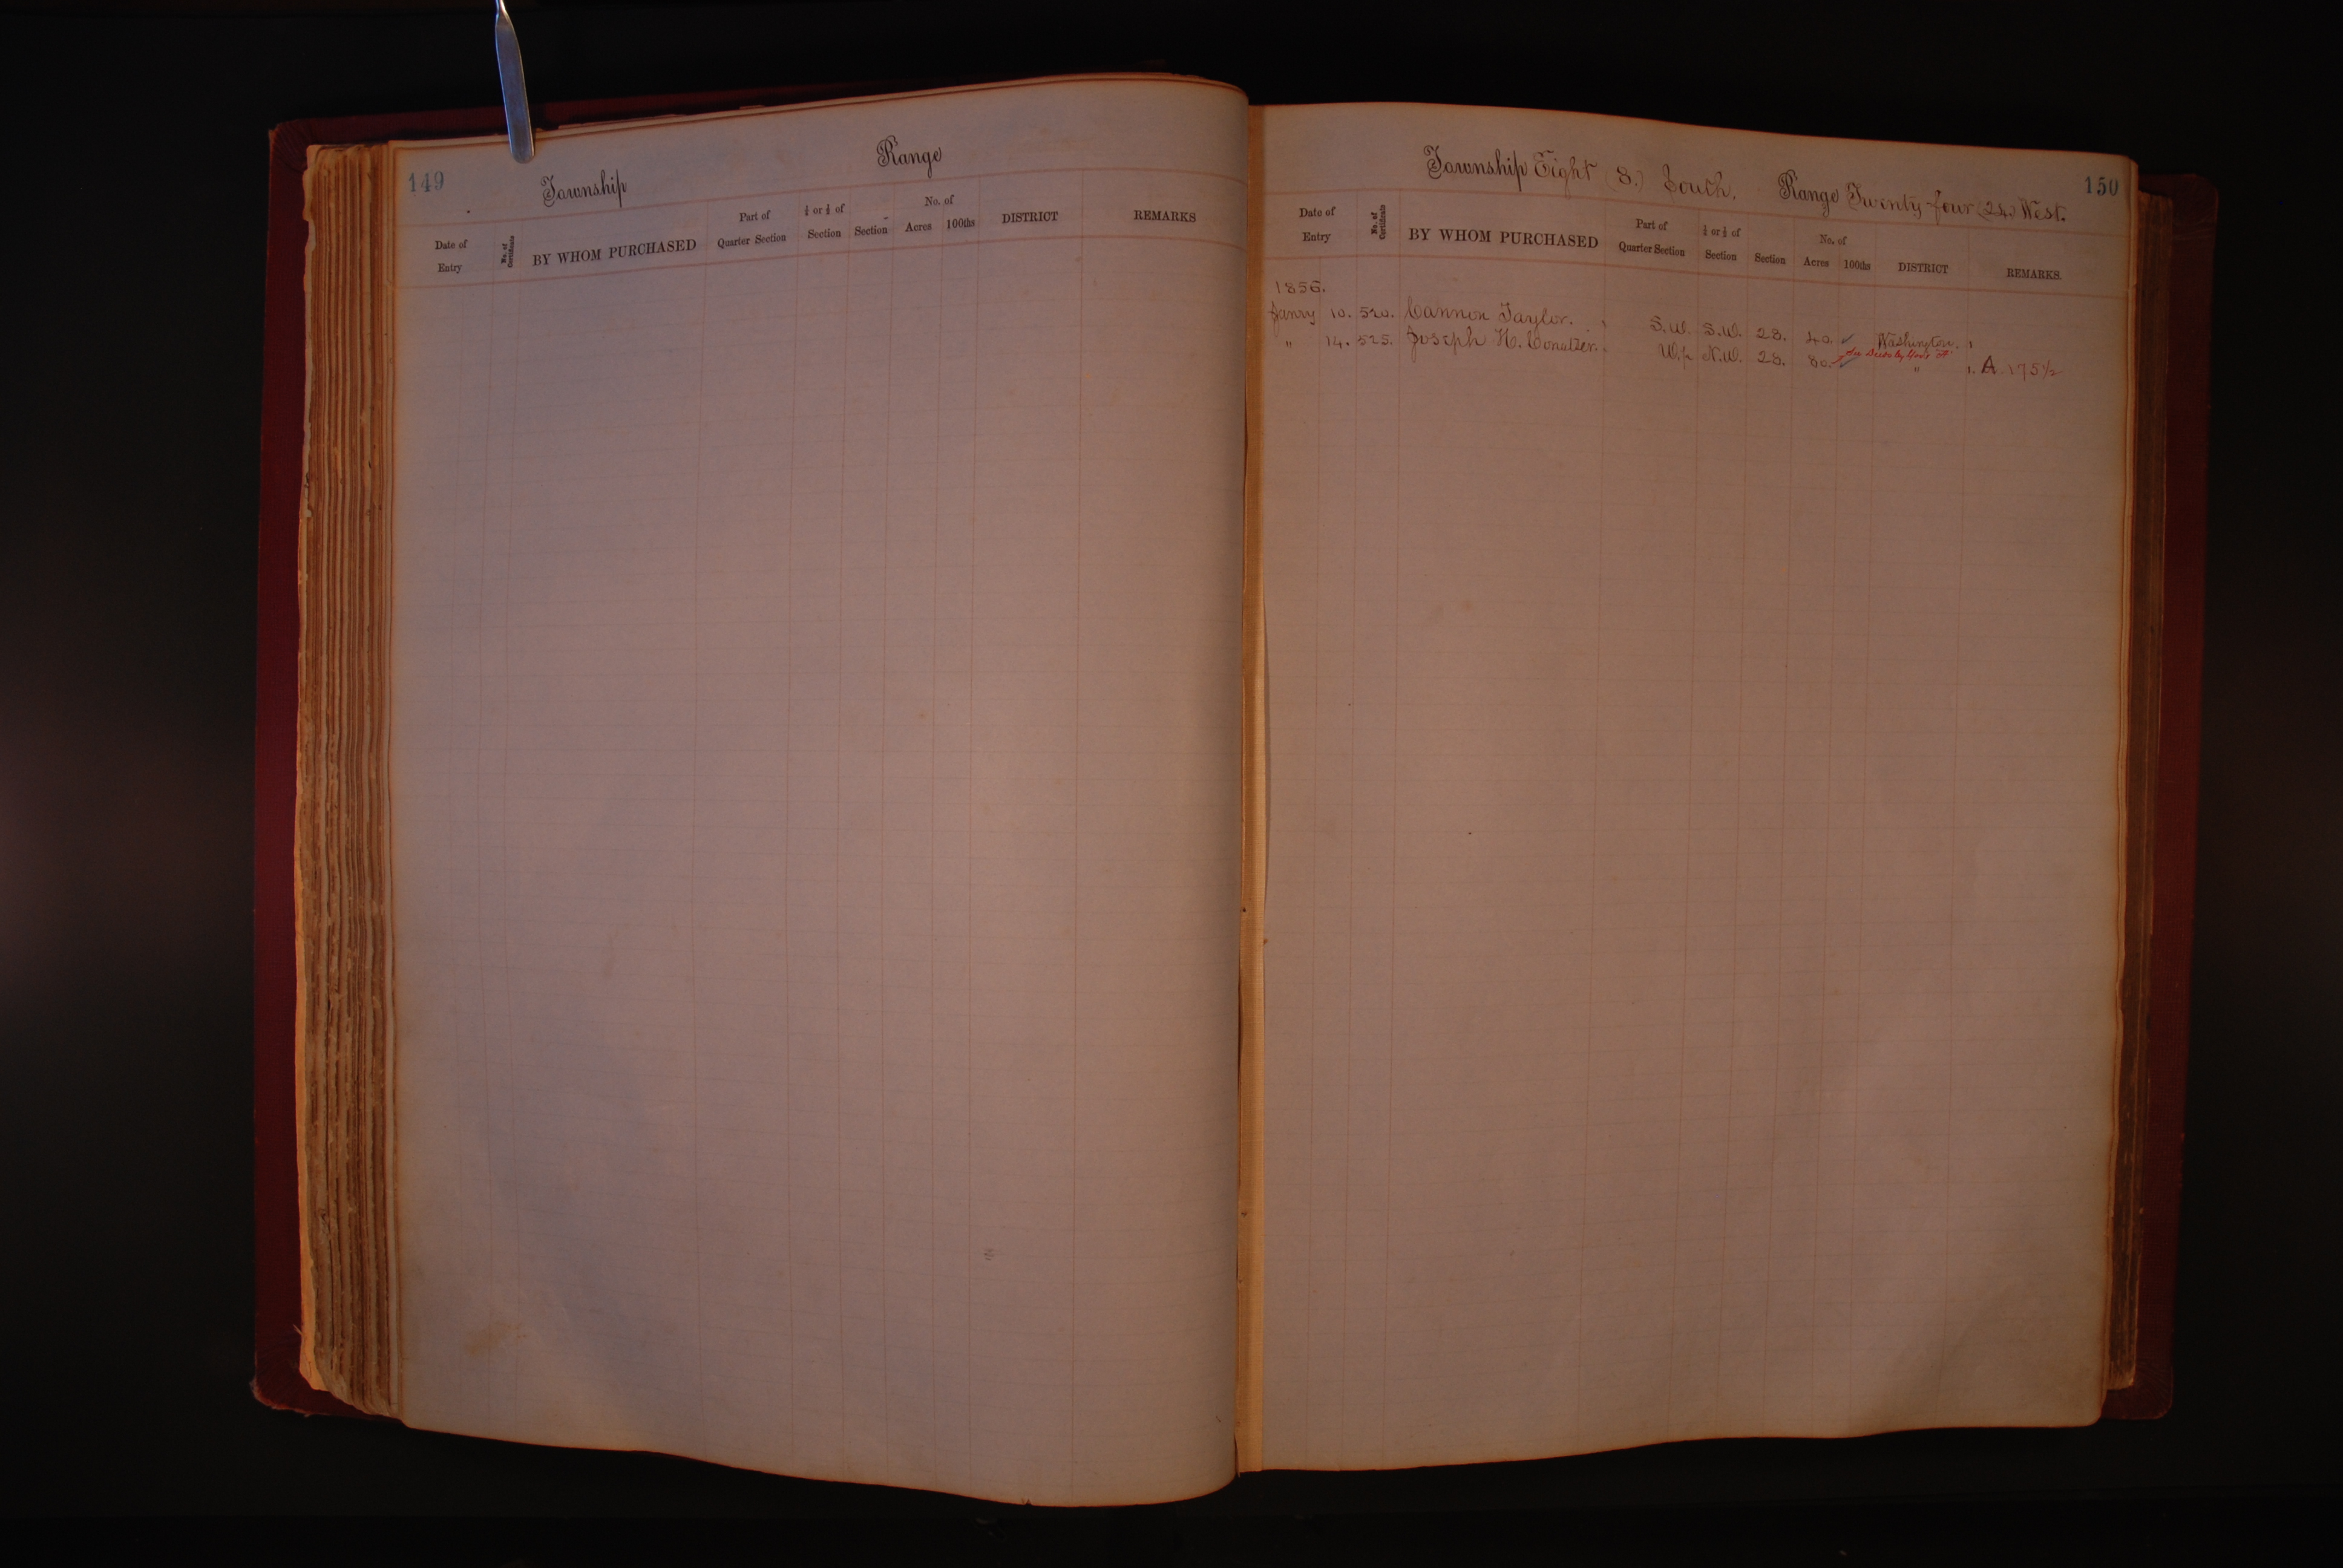 149
Township Range
Date of Entry No. of Certificate BY WHOM PURCHASED Part of Quarter Section ½ or ¼ of Section Section No. of Acres 100ths DISTRICT REMARKS
Township Eight (8.) South. Range Twenty four (24) West. 150
Date of Entry No. of Certificate BY WHOM PURCHASED Part of Quarter Section ½ or ¼ of Section Section No. of Acres 100ths DISTRICT REMARKS.
1856.
Janry 10. 520. Cannon Taylor. S.W. S.W. 28. 40. Washington.
" 14. 525. Joseph H. Conatzer. W.½ N.W. 28. 80. " A. 175½